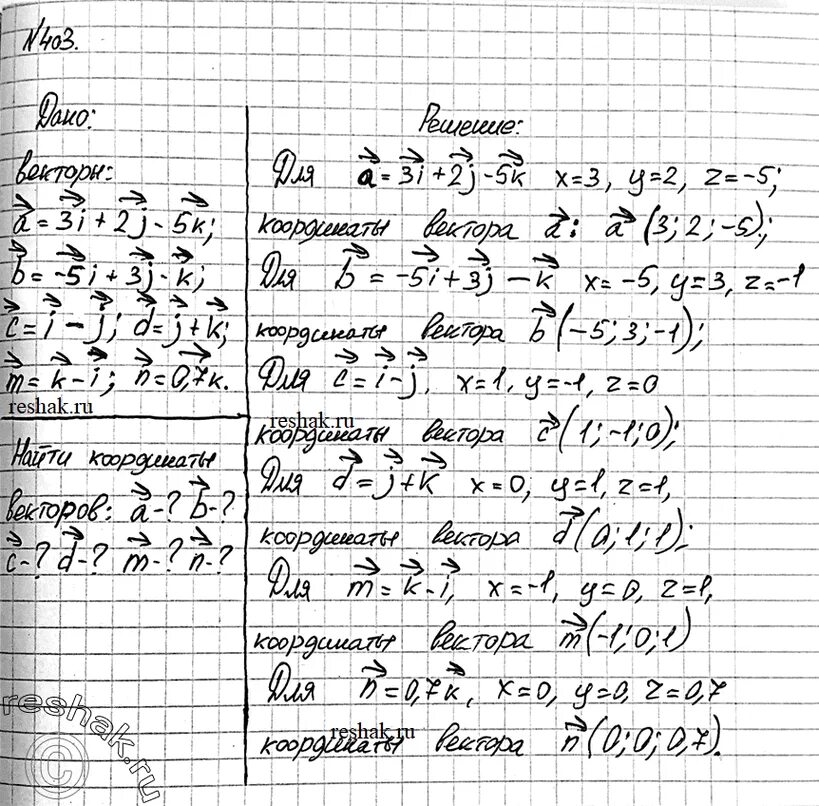 №403.
Дано:
векторы:
a = 3i + 2j - 5k;
b = -5i + 3j - k;
c = i - j; d = j + k;
m = k - i; n = 0,7k.
reshak.ru
Найти координаты
векторов: a - ? b - ?
c - ? d - ? m - ? n - ?
Решение:
Для a = 3i + 2j - 5k x = 3, y = 2, z = -5;
координаты вектора a: a (3; 2; -5);
Для b = -5i + 3j - k x = -5, y = 3, z = -1
координаты вектора b (-5; 3; -1);
Для c = i - j, x = 1, y = -1, z = 0
reshak.ru
координаты вектора c (1; -1; 0);
Для d = j + k x = 0, y = 1, z = 1,
координаты вектора d (0; 1; 1);
Для m = k - i, x = -1, y = 0, z = 1,
координаты вектора m (-1; 0; 1)
Для n = 0,7k, x = 0, y = 0, z = 0,7
reshak.ru
координаты вектора n (0; 0; 0,7).
reshak.ru
©